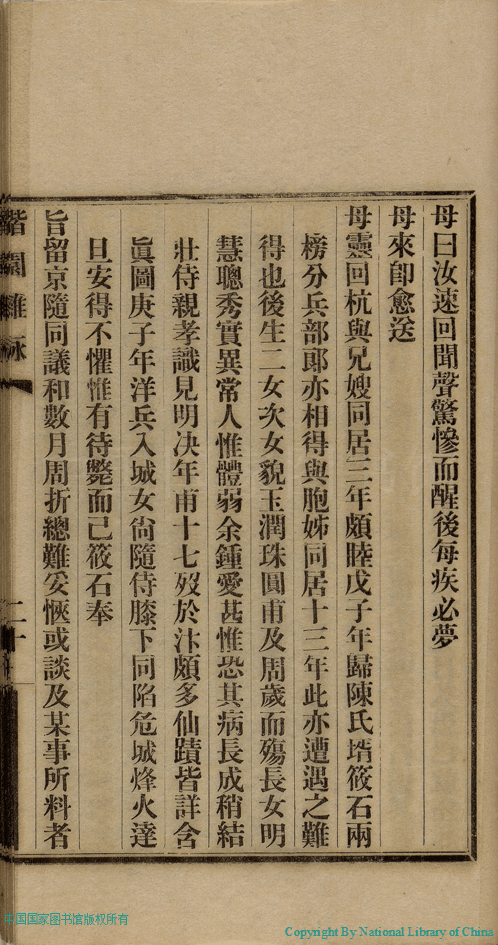 母曰汝速回聞聲驚慘而醒後每疾必夢
母來卽愈送
母靈回杭與兄嫂同居三年頗睦戊子年歸陳氏壻筱石兩
榜分兵部郎亦相得與胞姊同居十三年此亦遭遇之難
得也後生二女次女貌玉潤珠圓甫及周歲而殤長女明
慧聰秀實異常人惟體弱余鍾愛甚惟恐其病長成稍結
壯侍親孝識見明决年甫十七歿於汴頗多仙蹟皆詳含
眞圖庚子年洋兵入城女尙隨侍膝下同陷危城烽火達
旦安得不懼惟有待斃而已筱石奉
旨留京隨同議和數月周折總難妥愜或談及某事所料者
二十
中国国家图书馆版权所有
Copyright By National Library of China